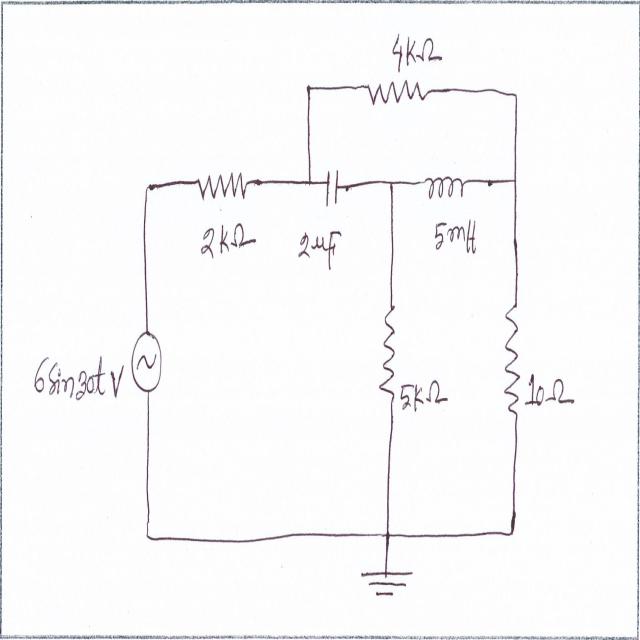 4KΩ
2KΩ
2μF
5mH
6Sin30t V
5KΩ
10Ω